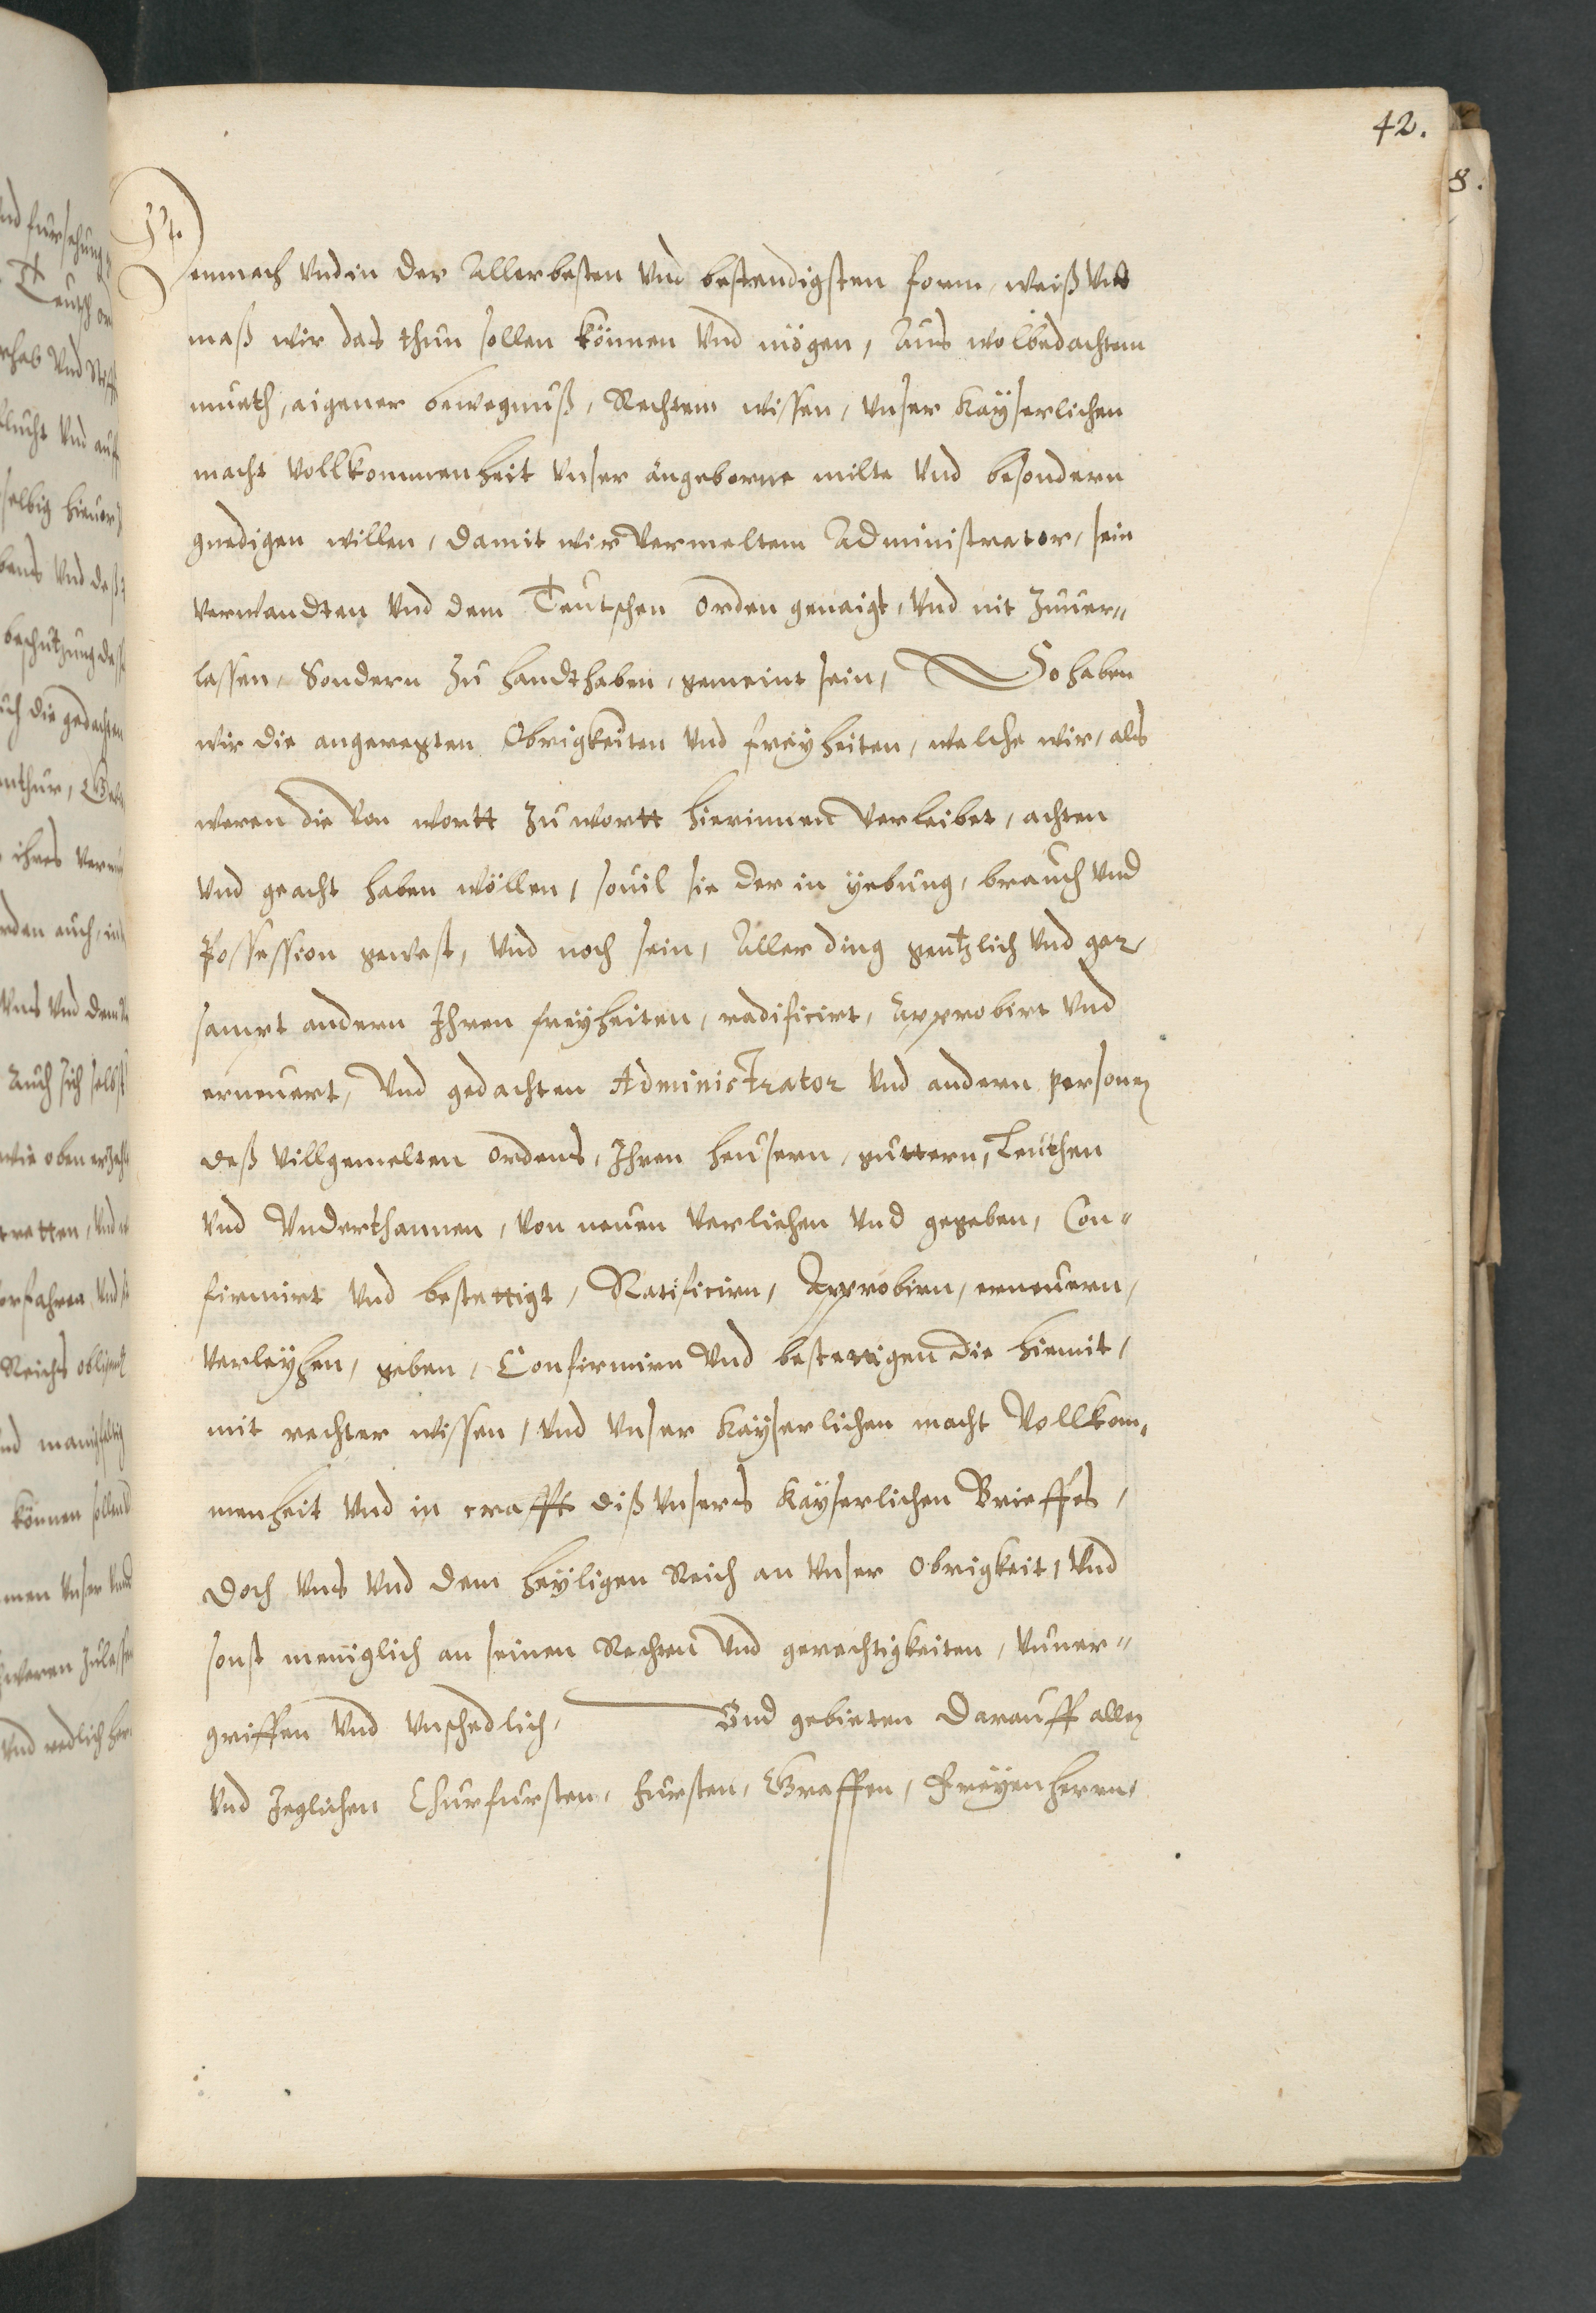 42.
8.
Demnach Vnd in der Allerbesten Vnd bestendigsten form, weiß Vnd
maß wir das thun sollen können Vnd mögen, Aus wolbedachtem
mueth, aigener bewegnuß, Rechtem wissen, Vnser Kayserlichen
macht Vollkommenheit Vnser angeborne milte Vnd besondern
gnedigen willen, damit wir Vermeltem Administrator, sein
Verwandten Vnd dem Teutschen Orden genaigt, Vnd nit Zuuer„
lassen, Sondern Zu handthaben, gemeint sein, So haben
wir die angeregten Obrigkeiten Vnd freyheiten, welche wir, als
weren die Von wortt Zu wortt hierinnen Verleibet, achten
Vnd geacht haben wöllen, souil sie der in yebung, brauch Vnd
Possession gewest, Vnd noch sein, Aller ding gentzlich Vnd gar
sampt andern Ihren freyheiten, radificirt, Approbirt Vnd
erneuert, Vnd gedachten Administrator Vnd andern personen
deß Villgemelten Ordens, Ihren heusern, guttern, Leuthen
Vnd Vnderthannen, Von neuen Verliehen Vnd gegeben, Con„
firmirt Vnd bestettigt, Ratificirn, Approbirn, erneuern,
Verleyhen, geben, Confirmirn Vnd bestettigen die hiemit,
mit rechter wissen, Vnd Vnser Kayserlichen macht Vollkom„
menheit Vnd in crafft diß Vnsers Kayserlichen Brieffes,
Doch Vns Vnd dem heyligen Reich an Vnser Obrigkeit, Vnd
sonst meniglich an seinen Rechten Vnd gerechtigkeiten, Vnuer„
griffen Vnd Vnschedlich, Vnd gebieten Darauff allen
Vnd Jeglichen Churfursten, Fursten, Graffen, Freyen herrn,